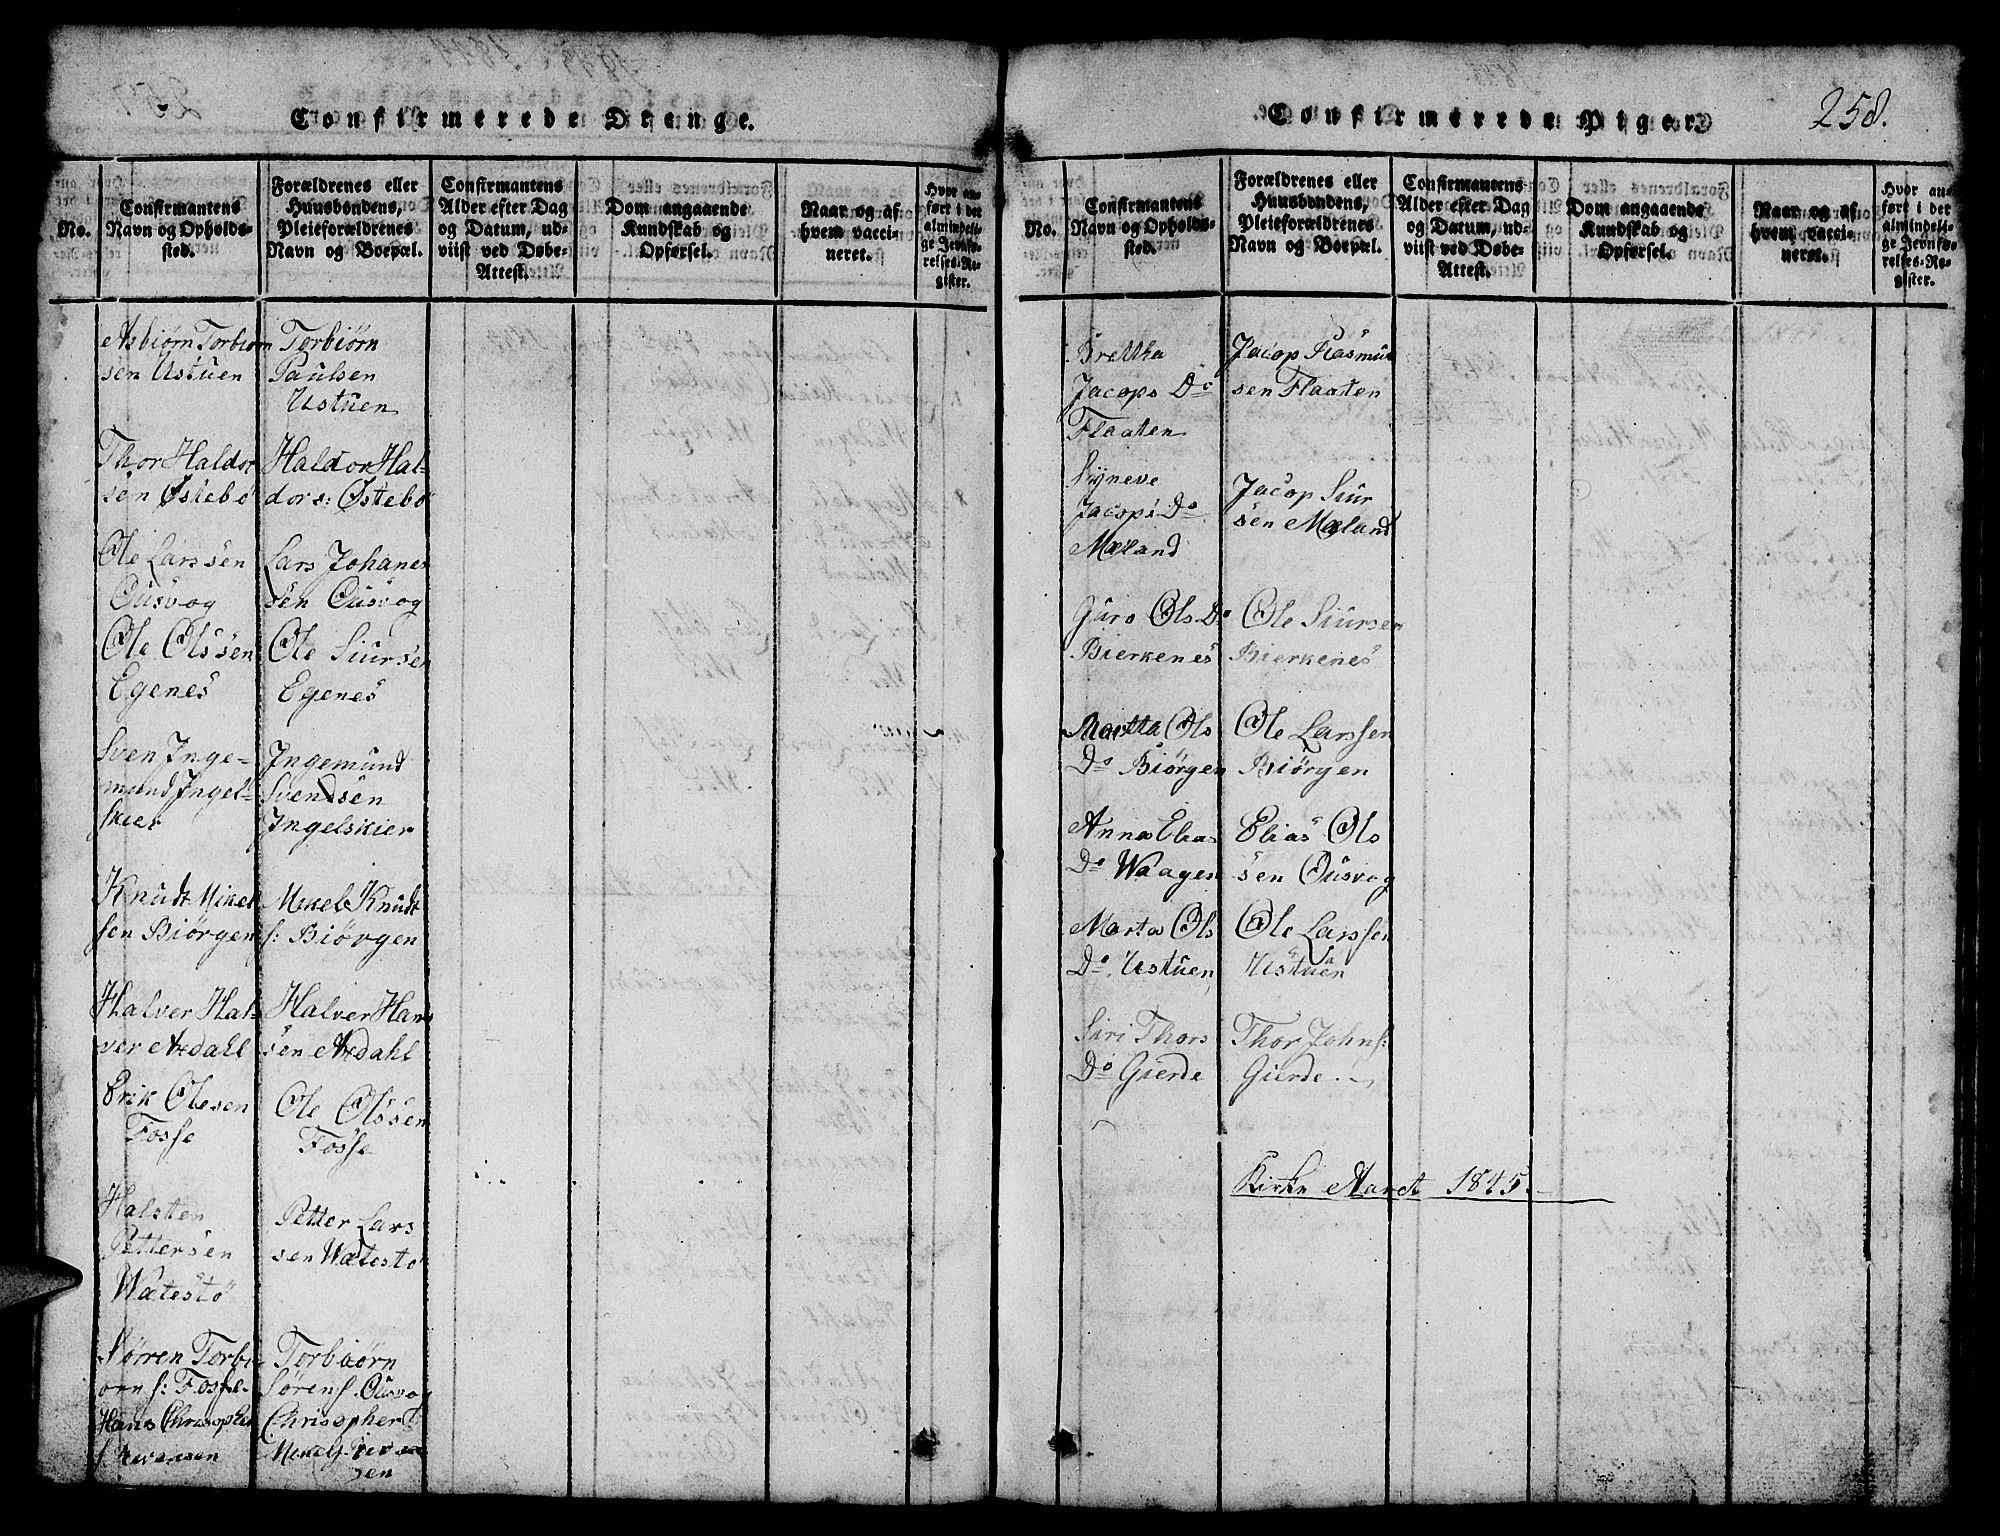 Confirmerede Drenge.
No.
Confirmantens
Navn og Opholds-
sted.
Forældrenes eller
Huusbondens,
Pleieforældrenes
Navn og Boepæl.
Confirmantens
Alder efter Dag
og Datum, ud-
viist ved Døbe-
Attest.
Dom angaaende
Kundskab og
Opførsel.
Naar og af
hvem vacci-
neret.
Hvor an-
ført i det
almindeli-
ge Jevnfø-
relses-Re-
gister.
Asbiørn Torbiørn
sen Ustuen
Torbiørn
Paulsen
Ustuen
Thor Haldor
sen Østebø
Haldor Hal-
dors: Østebø
Ole Larssen
Ousvog
Lars Johanes
sen Ousvog
Ole Olssen
Egenes
Ole Siursen
Egenes
Sven Inge-
mund Ingel-
skier
Ingemund
Svendsen
Ingelskier
Knudt Mikel
sen Biørgen
Mikel Knudt
s: Biørgen
Halver Hal-
ver Axdahl
Halver Hans
sen Axdahl
Erik Olesen
Fosse
Ole Olssen
Fosse
Halsten
Pettersen
Watestø
Petter Lars
sen Watestø
Sørren Torbi-
ørn s: Fosse
Torbiørn
Sørens. Ousvog
Hans Chrisopher
Chrisopher
sen
Confirmerede Piger.
258.
No.
Confirmantens
Navn og Opholds-
sted.
Forældrenes eller
Huusbondens,
Pleieforældrenes
Navn og Boepæl.
Confirmantens
Alder efter Dag
og Datum, ud-
viist ved Døbe-
Attest.
Dom angaaende
Kundskab og
Opførsel.
Naar og af
hvem vacci-
neret.
Hvor an-
ført i det
almindeli-
ge Jevnfø-
relses-Re-
gister.
Brettha
Jacops Do
Flaaten
Jacop Rasmus
sen Flaaten
Syneve
Jacops Do
Mæland
Jacop Siur
sen Mæland
Guro Ols Do
Bierkenes
Ole Siursen
Bierkenes
Martta Ols
Do Biørgen
Ole Larssen
Biørgen
Anna Elia
Do Waagen
Elias Ols
sen Ousvog
Marta Ols
Do Ustuen
Ole Larssen
Ustuen
Siri Thors
Do Gierde
Thor Johns:
Gierde
Kirke Aaret 1845.